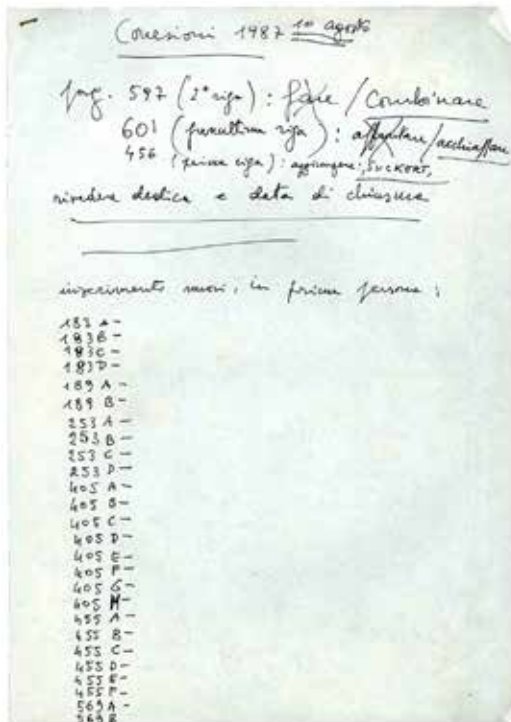 Correzioni 1987 10 agosto
pag. 597 (2ª riga): fare / combinare
601 (penultima riga): affrontare / acchiappare
456 (prima riga): aggiungere: , SUCKERT,
rivedere dedica e data di chiusura
inserimento nuovi, in prima persona:
183 A-
183B-
183C-
183D-
189 A-
189 B-
253 A-
253 B-
253 C-
253 D-
405 A-
405 B-
405 C-
405 D-
405 E-
405 F-
405 G-
405 H-
455 A-
455 B-
455 C-
455 D-
455 E-
455 F-
569 A-
569 B